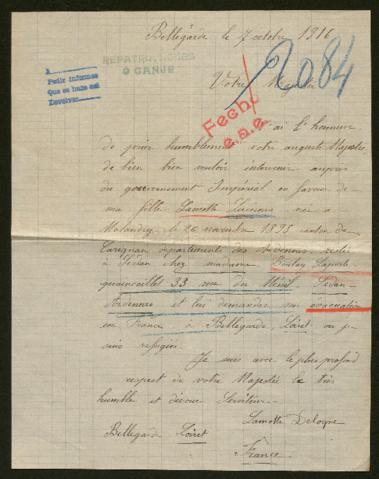 Bellegarde le 7 octobre 1916
REPATRIACIONES
Ó CANJE
A
Pedir informes
Que se haga así
Devolver
2084
Votre Majesté
Fecho
e.a.e.
ai l'honneur
de prier humblement votre auguste Majesté
de bien bien vouloir intervenir auprès
du gouvernement Impérial en faveur de
ma fille Lamotte née à
Malandry le 20 novembre 1895 canton de
Carignan département des Ardennes restée
à Sedan chez madame
33 rue du Mesnil Sedan
Ardennes et de demander son
en France à Bellegarde, Loiret, ou je
suis réfugiée.
Je suis avec le plus profond
respect de votre Majesté la très
humble et dévoué
Lamotte Deloyne
Bellegarde Loiret
France